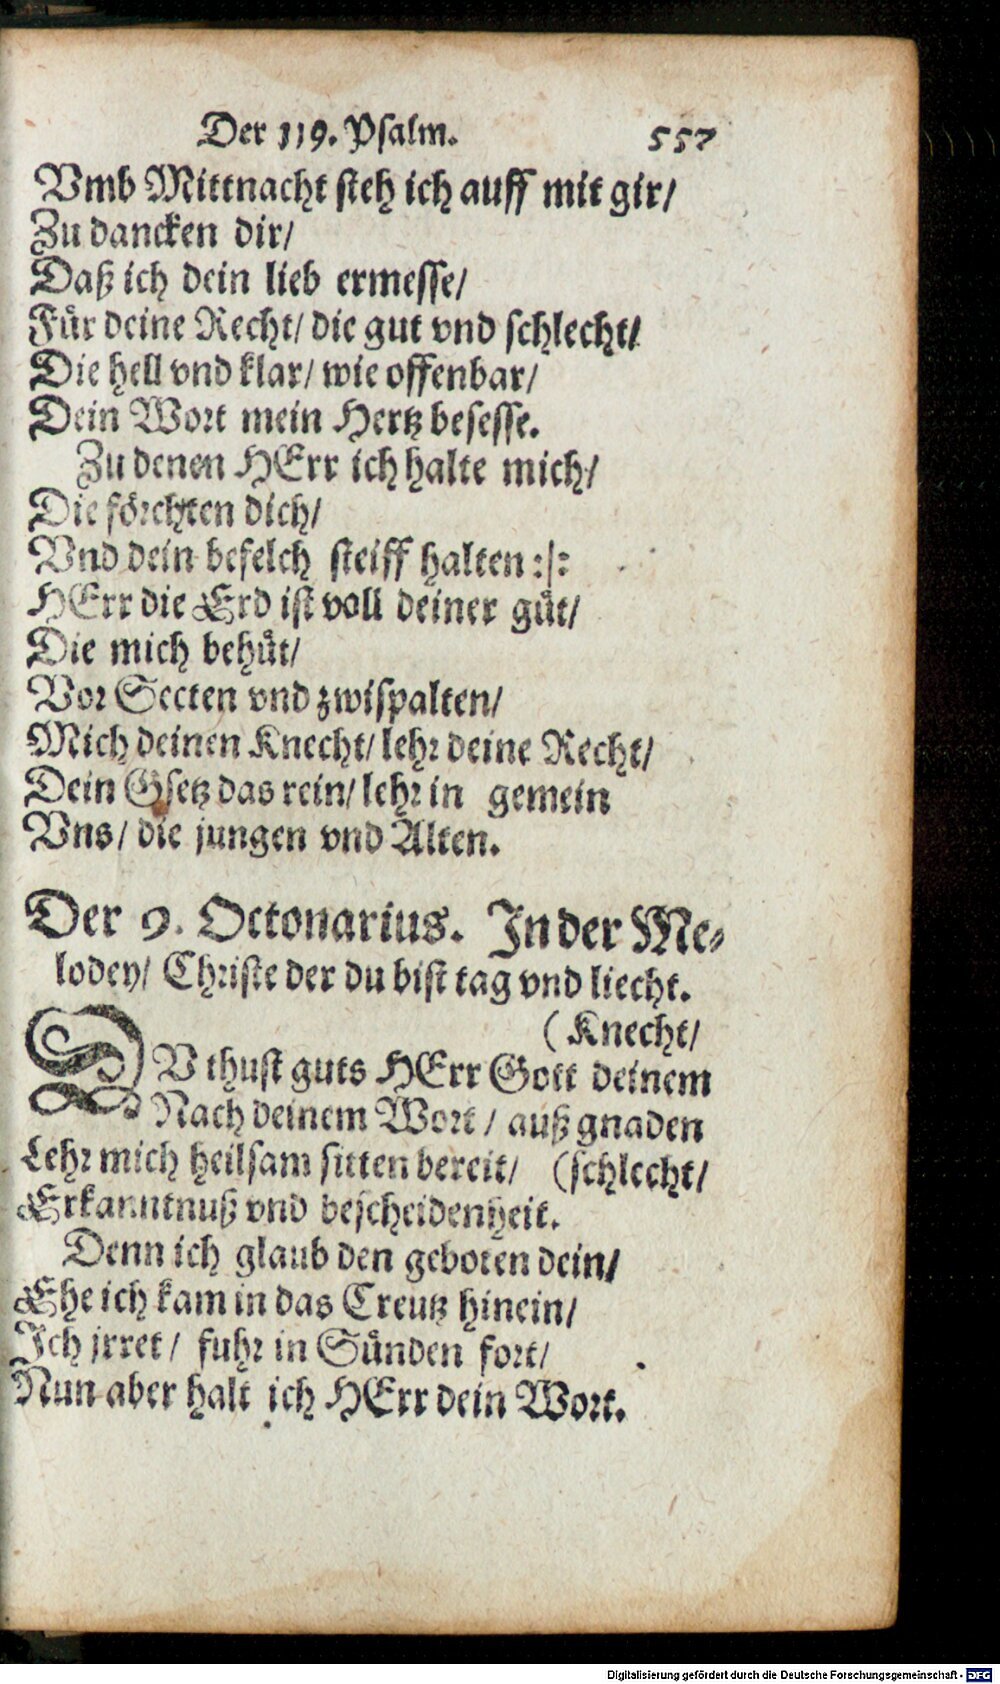 Der 119. Psalm. 557
Vmb Mittnacht steh ich auff mit gir/
Zu dancken dir/
Daß ich dein lieb ermesse/
Für deine Recht/ die gut vnd schlecht/
Die hell vnd klar/ wie offenbar/
Dein Wort mein Hertz besesse.
Zu denen HErr ich halte mich/
Die förchten dich/
Vnd dein befelch steiff halten :/:
HErr die Erd ist voll deiner güt/
Die mich behüt/
Vor Secten vnd zwispalten/
Mich deinen Knecht/ lehr deine Recht/
Dein Gsetz das rein/ lehr in gemein
Vns/ die jungen vnd Alten.
Der 9. Octonarius. In der Me-
lodey/ Christe der du bist tag vnd liecht.
(Knecht/
DV thust guts HErr Gott deinem
Nach deinem Wort/ auß gnaden
Lehr mich heilsam sitten bereit/ (schlecht/
Erkanntnuß vnd bescheidenheit.
Denn ich glaub den geboten dein/
Ehe ich kam in das Creutz hinein/
Ich jrret/ fuhr in Sünden fort/
Nun aber halt ich HErr dein Wort.
Digitalisierung gefördert durch die Deutsche Forschungsgemeinschaft - DFG